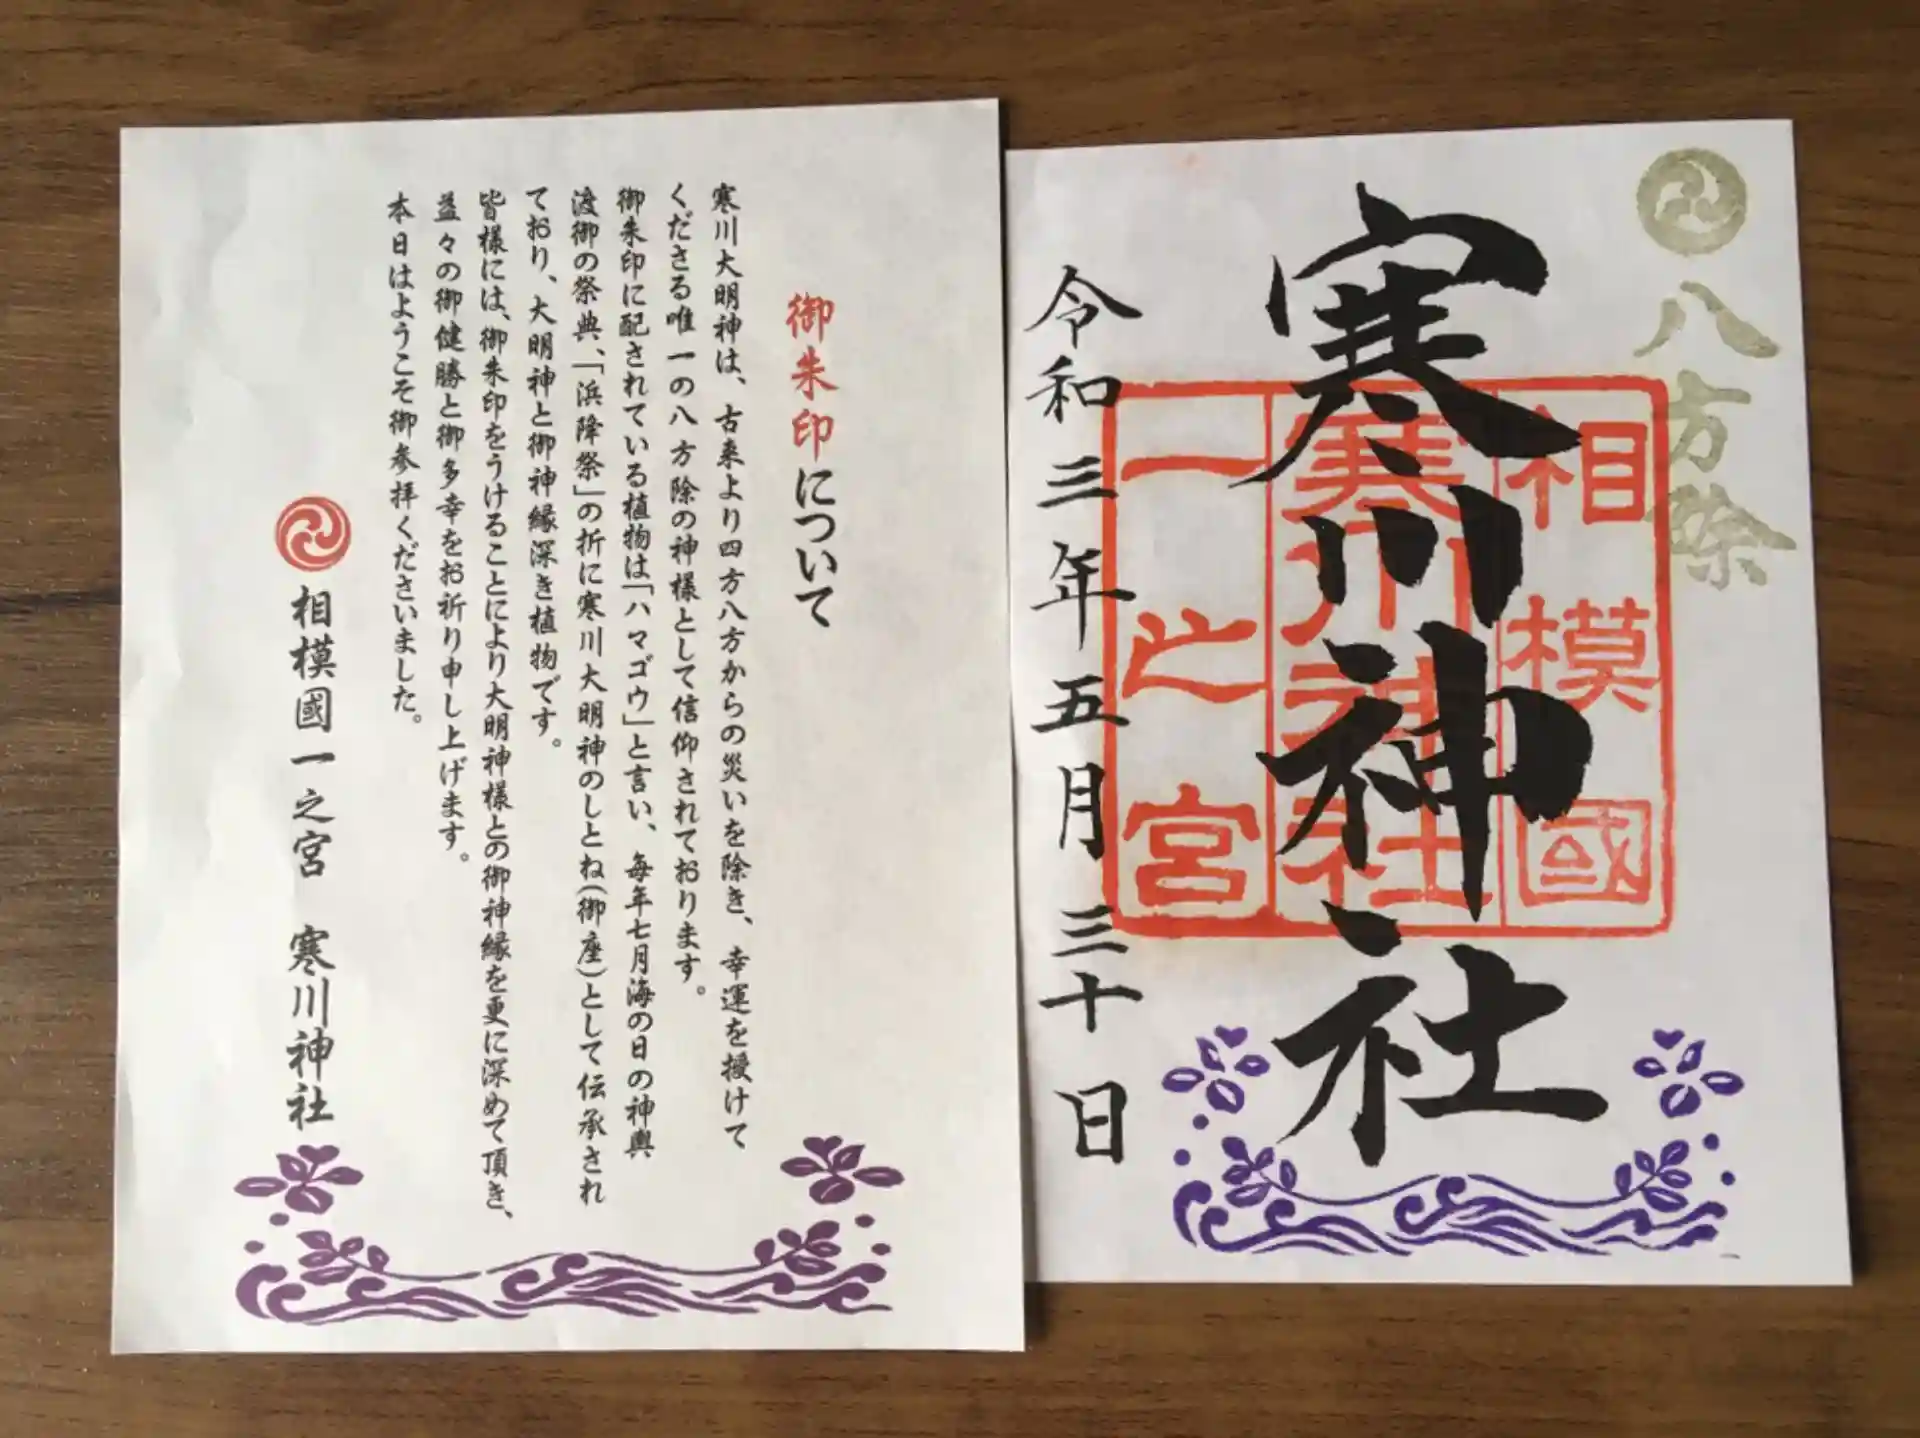 御朱印について
寒川大明神は、古来より四方八方からの災いを除き、幸運を授けて
くださる唯一の八方除の神様として信仰されております。
御朱印に配されている植物は「ハマゴウ」と言い、毎年七月海の日の神輿
渡御の祭典、「浜降祭」の折に寒川大明神のしとね(御座)として伝承され
ており、大明神と御神縁深き植物です。
皆様には、御朱印をうけることにより大明神様との御神縁を更に深めて頂き、
益々の御健勝と御多幸をお祈り申し上げます。
本日はようこそ御参拝くださいました。
相模國一之宮 寒川神社
八方除
寒川神社
相模國
寒川神社
一之宮
令和三年五月三十日